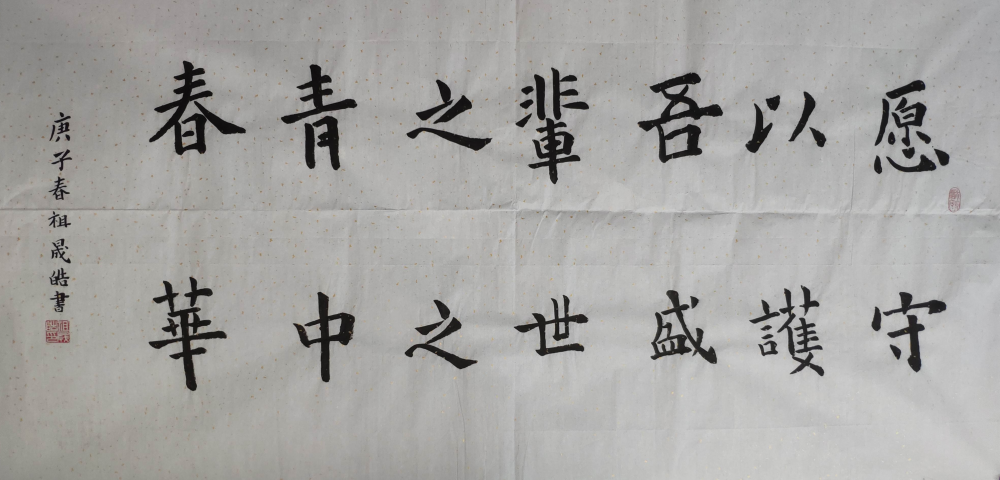 愿以吾輩之青春
守護盛世之中華
庚子春祖晟皓書